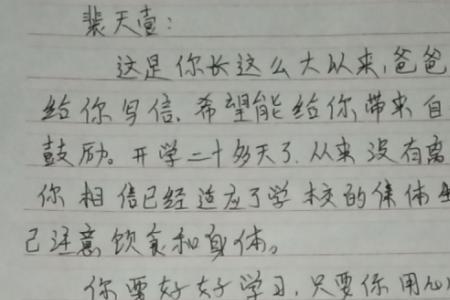 裴天壹：
这是你长这么大以来,爸爸
给你写信.希望能给你带来自
鼓励。开学二十多天了.从来没有离
你相信已经适应了学校的集体生
己注意饮食和身体。
你要好好学习,只要你用心